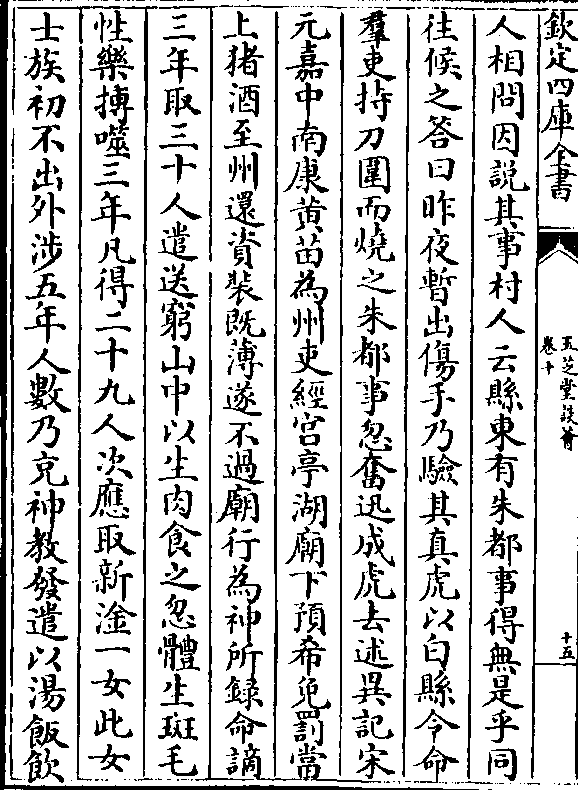 欽定四庫全書
玉芝堂談薈
卷十
十五
人相問因説其事村人云縣東有朱都事得無是乎同
往候之答曰昨夜暫出傷手乃驗其真虎以白縣令命
羣吏持刀圍而燒之朱都事忽奮迅成虎去述異記宋
元嘉中南康黃苗為州吏經宫亭湖廟下預希免罰當
上猪酒至州還資裝既薄遂不過廟行為神所録命謫
三年取三十人遣送窮山中以生肉食之忽體生斑毛
性樂搏噬三年凡得二十九人次應取新淦一女此女
士族初不出外涉五年人數乃充神教發遣以湯飯飲